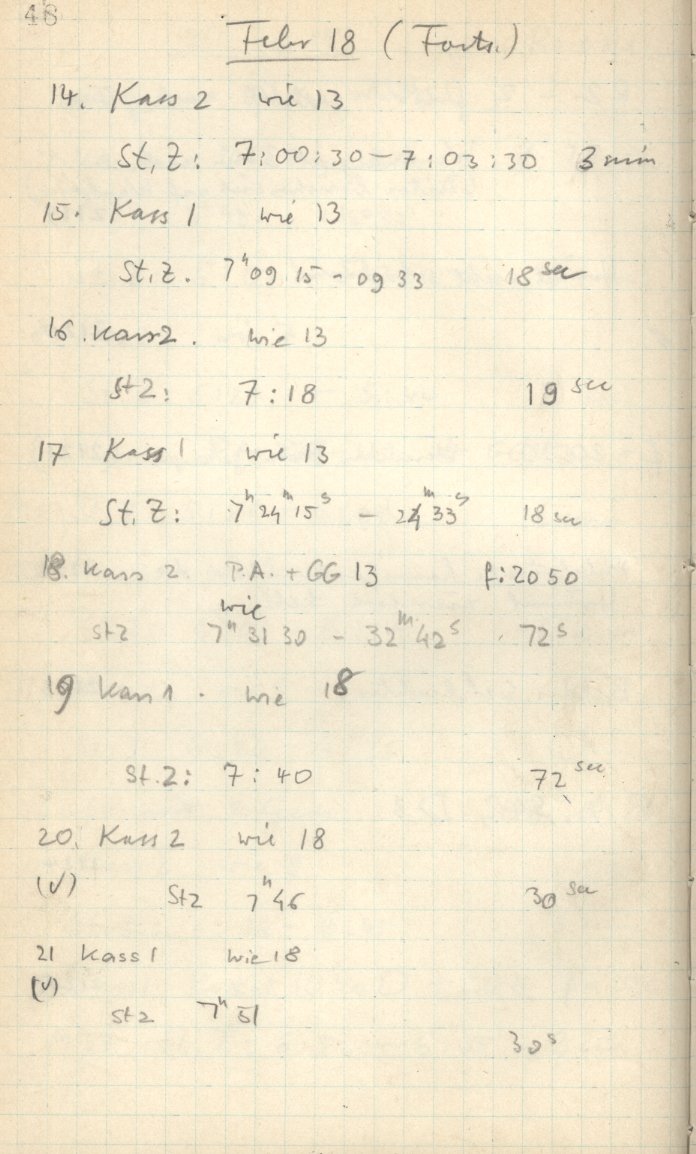 48
Febr 18 (Forts.)
14. Kass 2 wie 13
St.Z: 7:00:30 – 7:03:30 3 min
15. Kass 1 wie 13
St.Z. 7h 09 15 - 09 33 18 sec
16. Kass 2. wie 13
StZ: 7:18 19 sec
17 Kass 1 wie 13
St.Z: 7h 24m 15s – 24m 33s 18 sec
18. Kass 2 P.A. + GG 13 f:2050
wie
StZ 7h 31 30 - 32m 42s 72s
19 Kass 1. wie 18
St.Z: 7:40 72 sec
20. Kass 2 wie 18
(√) StZ 7h 46 30 sec
21 Kass 1 wie 18
(√)
StZ 7h 51
30s